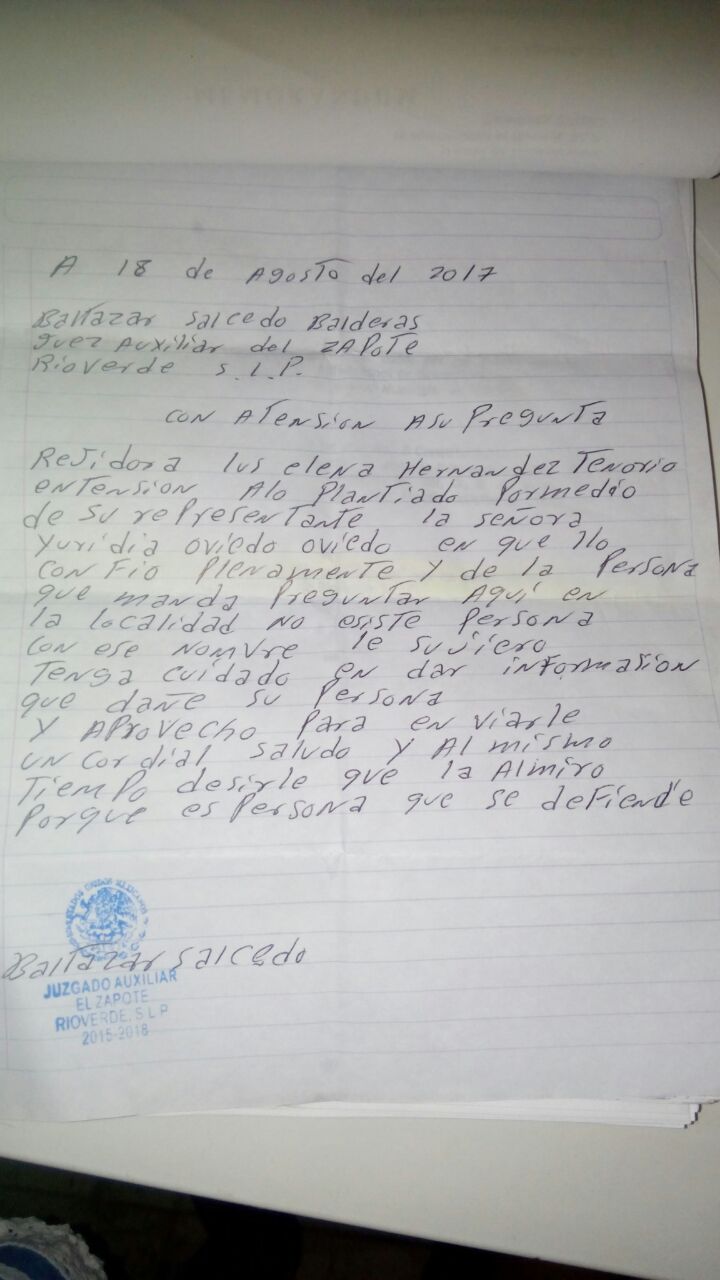 MEMORANDUM
A 18 de Agosto del 2017
Baltazar Salcedo Balderas
Juez Auxiliar del ZAPOTE
Rioverde S.L.P.
CON ATENSION ASU PREGUNTA
Rejidora lus elena Hernandez Tenorio
entension Alo Plantiado Pormedio
de su representante la señora
Yuridia oviedo oviedo en que llo
confio Plenamente y de la Persona
que manda Preguntar Aqui en
la localidad no esiste Persona
con ese nomvre le sujiero
Tenga cuidado en dar informasion
que dañe su Persona
Y APROVECHO Para en viarle
un cordial saludo y Al mismo
Tiempo desirle que la Almiro
Porque es Persona que se defiende
ESTADOS UNIDOS MEXICANOS
Baltazar Salcedo
JUZGADO AUXILIAR
EL ZAPOTE
RIOVERDE, S L P
2015-2018